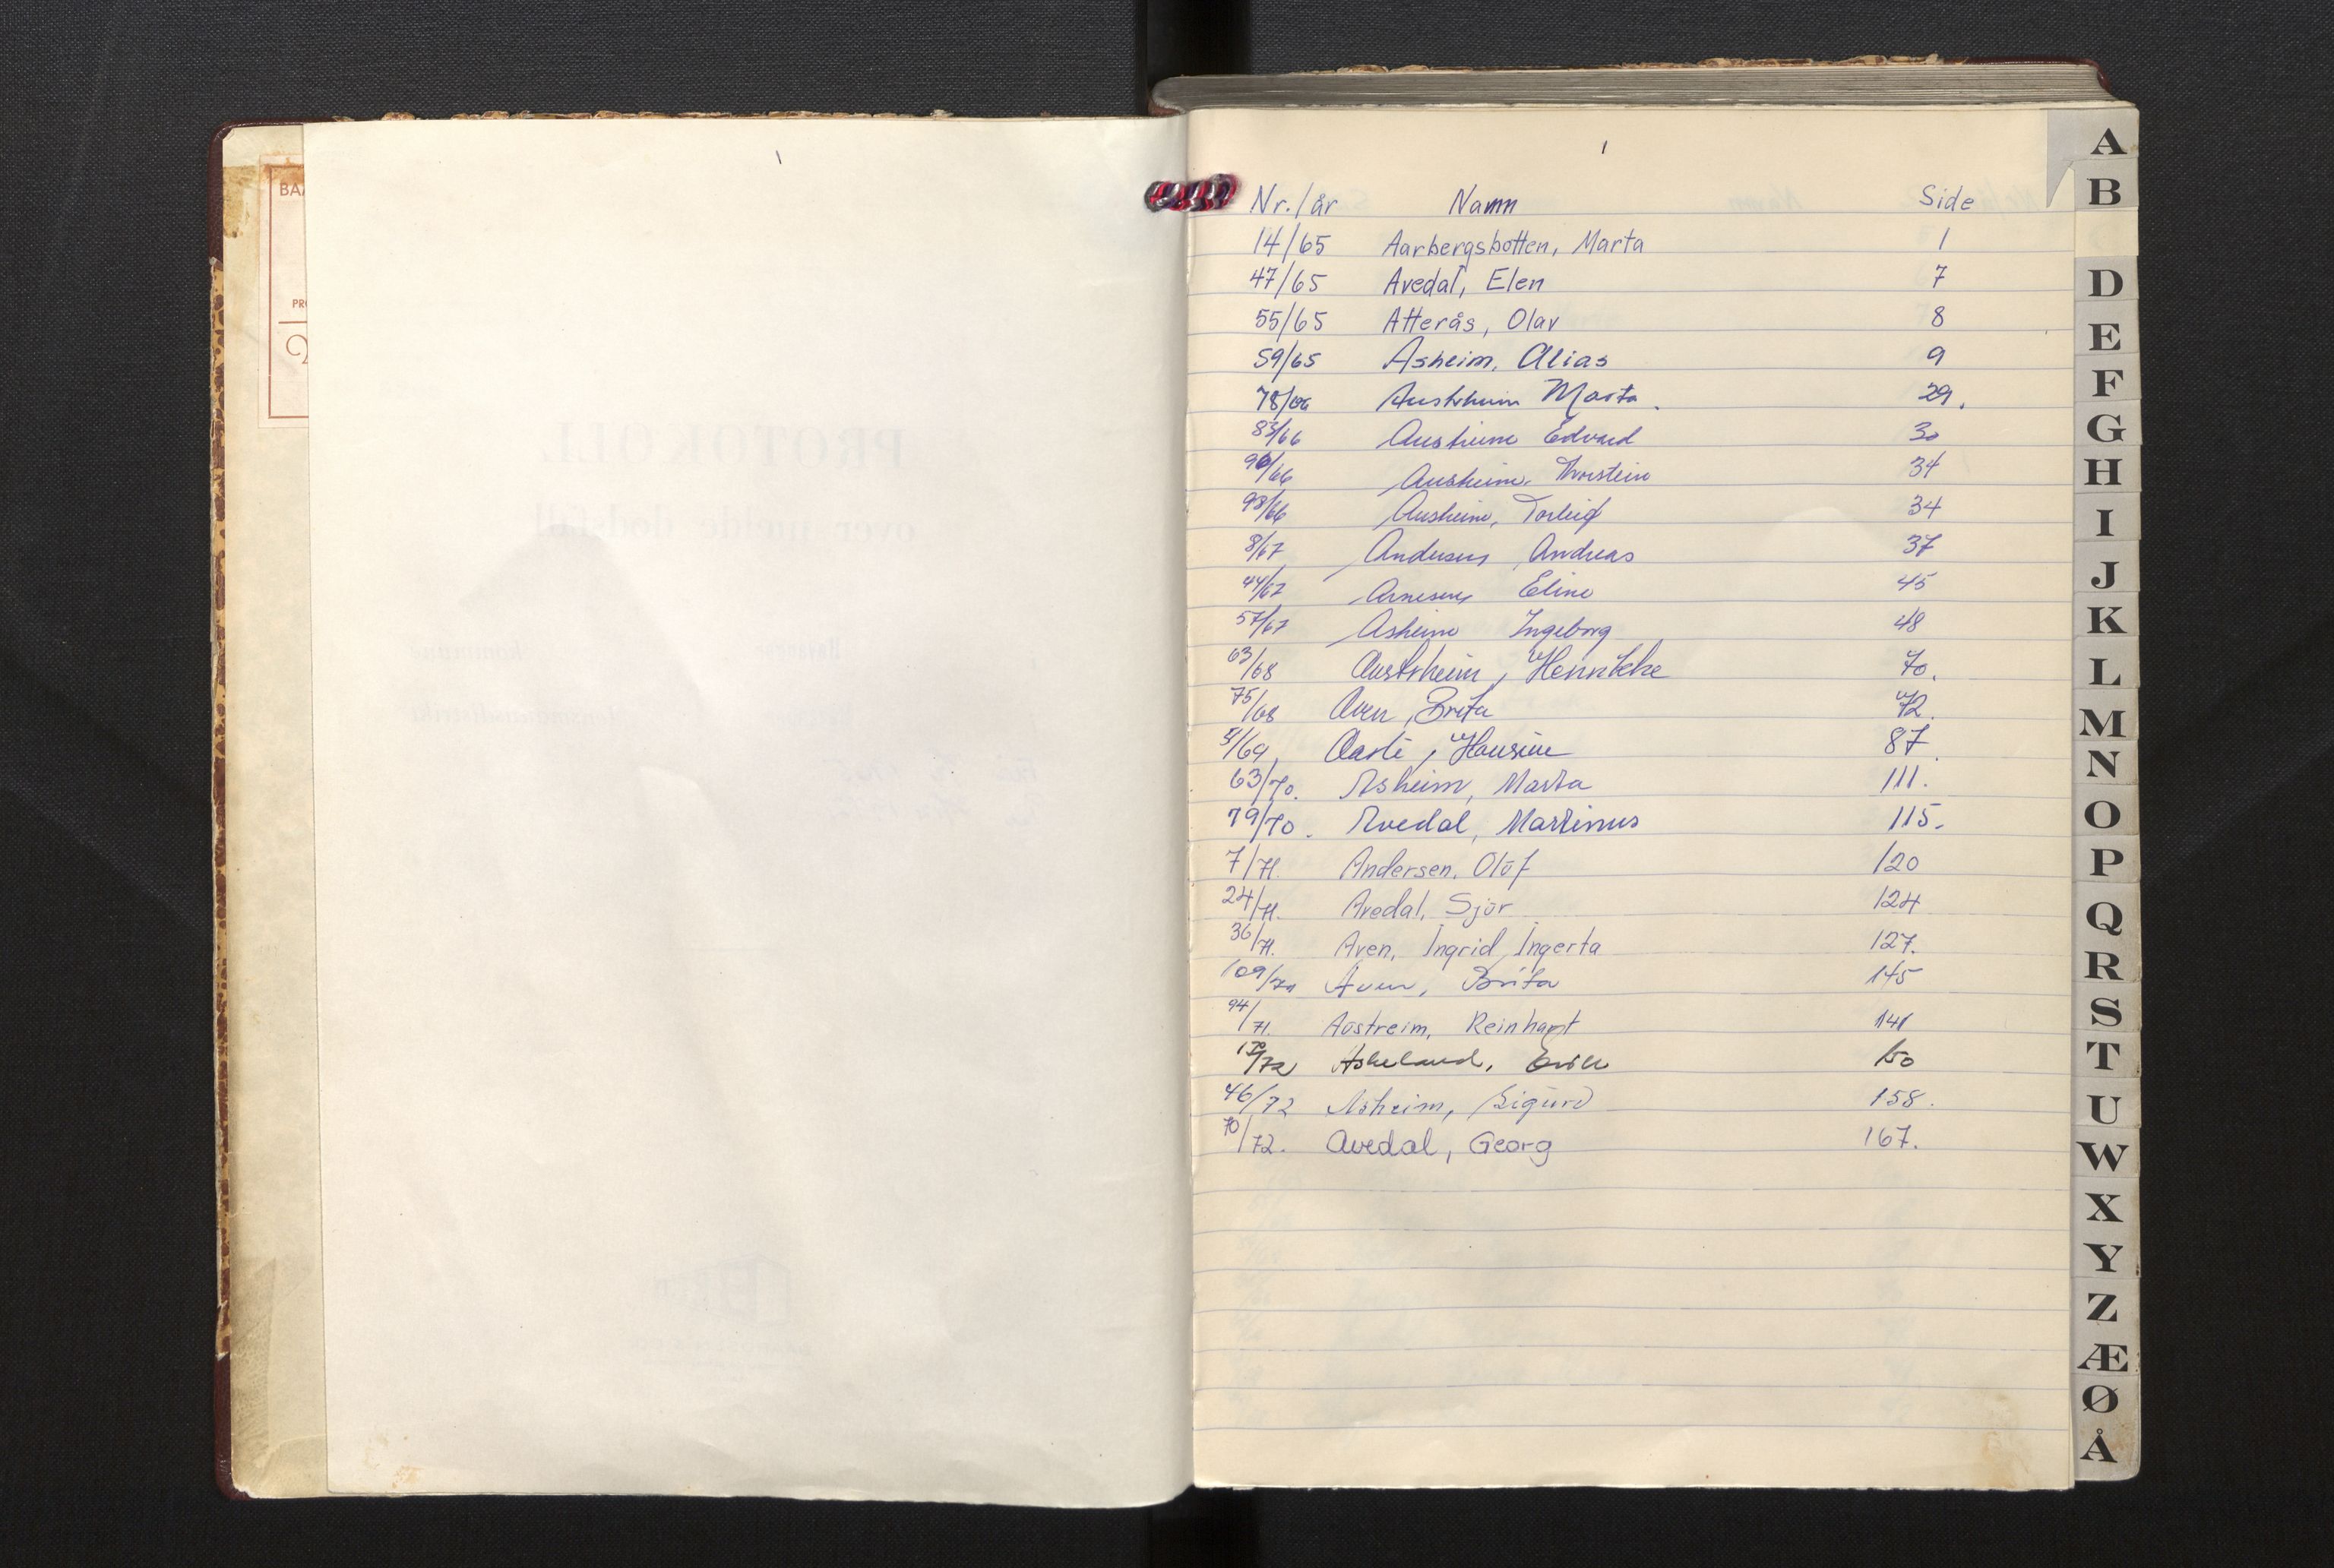 BAA
PRO
1
1
Nr./år Namn Side
14/65 Aarbergsbotten, Marta 1
47/65 Avedal, Elen 7
55/65 Atterås, Olav 8
59/65 Asheim, Alias 9
78/66 Austrheim Marta. 29.
83/66 Ausheim Edvard 30
90/66 Ausheim, Thorstein 34
93/66 Ausheim, Torleif 34
8/67 Andersen, Andreas 37
44/67 Arnesen, Eline 45
57/67 Asheim Ingeborg 48
63/68 Austrheim, Henrikke 70.
75/68 Aven, Brita 72.
/69 Hansine 87.
63/70. Asheim, Marta 111.
79/70. Avedal, Martinus 115.
7/71. Andersen, Olöf 120
24/71. Avedal, Sjur 124
36/71. Aven, Ingrid Ingerta 127.
109/71 Aven, Brita 145
94/71. Austreim, Reinhart 141
/72 Askeland, 150
46/72 Asheim, Sigurd 158.
70/72. Avedal, Georg 167.
A
B
D
E
F
G
H
I
J
K
L
M
N
O
P
Q
R
S
T
U
W
X
Y
Z
Æ
Ø
Å